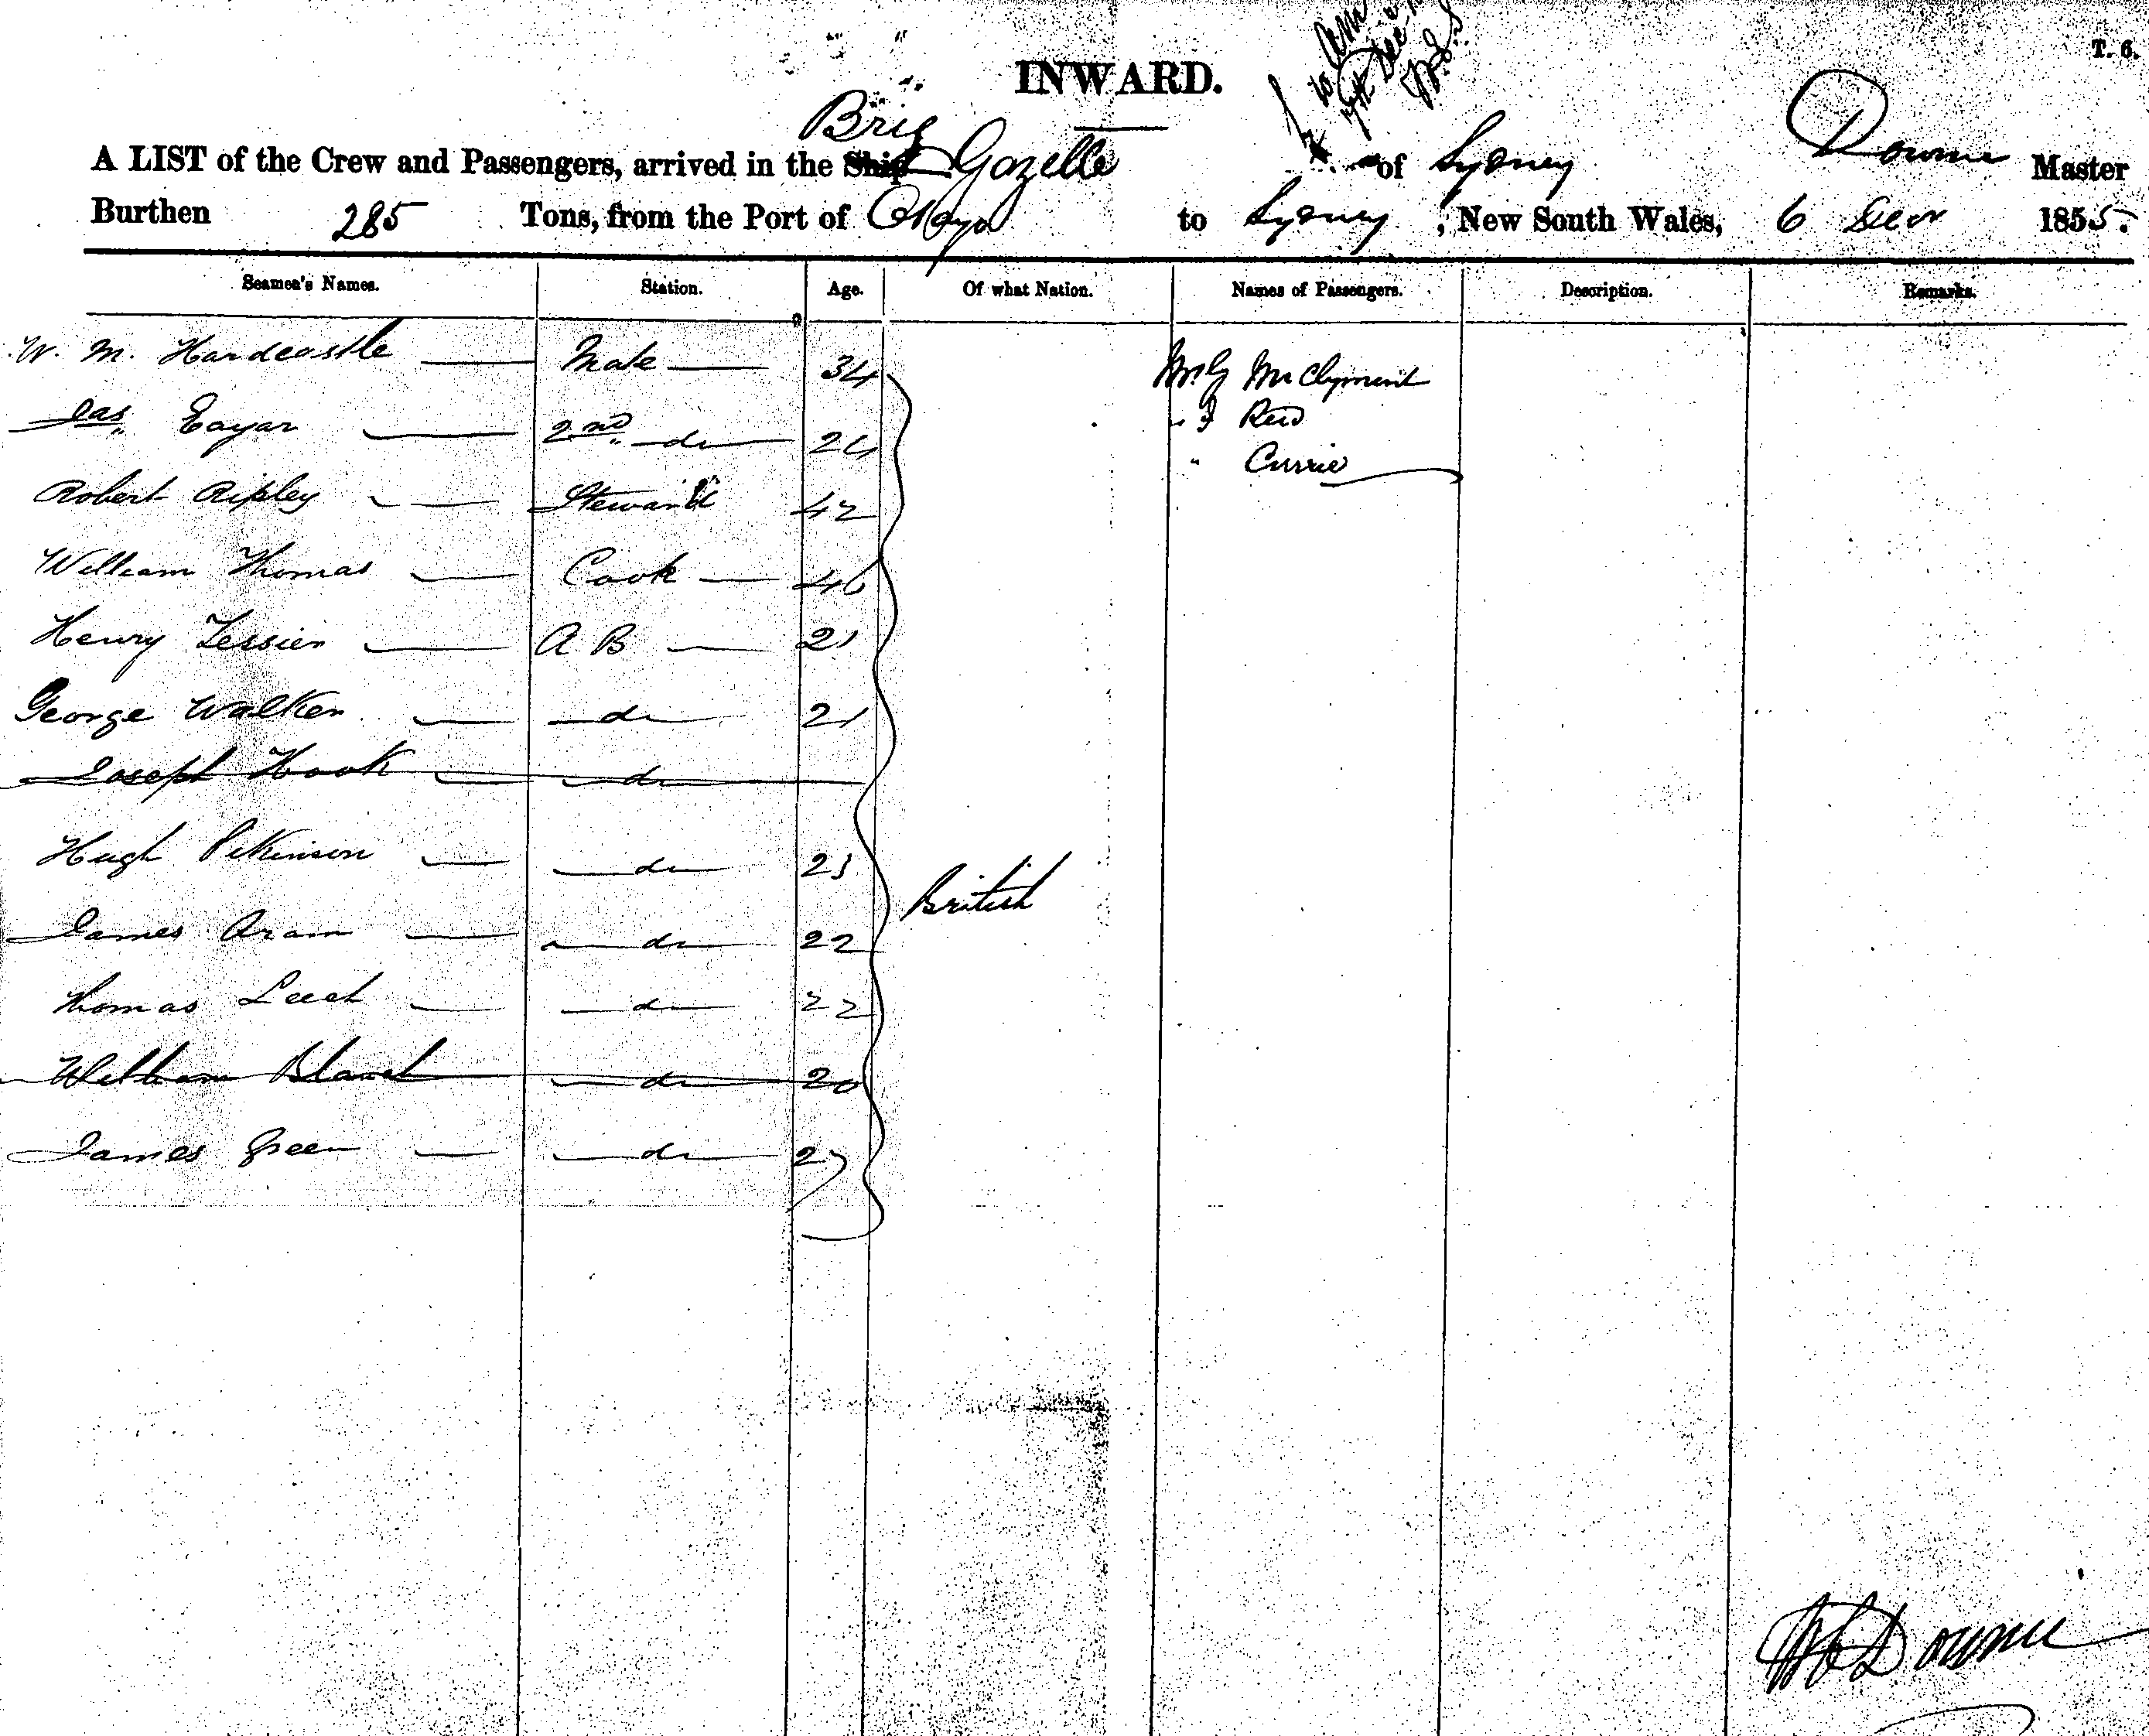 T. 6.
INWARD.
10 am
7th Dec
Brig
A LIST of the Crew and Passengers, arrived in the Ship Gazelle of Sydney Downie Master
Burthen 285 Tons, from the Port of Otago to Sydney, New South Wales, 6 Decr 1855.
Seamen's Names. Station. Age. Of what Nation. Names of Passengers. Description. Remarks.
W. M. Hardcastle Mate 34 Mr G McClyment
Jas Eagar 2nd do 24 " J Reid
Robert Ripley Steward 42 " Currie
William Thomas Cook 46
Henry Tessier A B 21
George Walker do 21
Joseph Hook do
Hugh Pitkinson do 23
British
James Aram do 22
Thomas Leech do 22
William Blanch do 20
James Green do 27
Downie